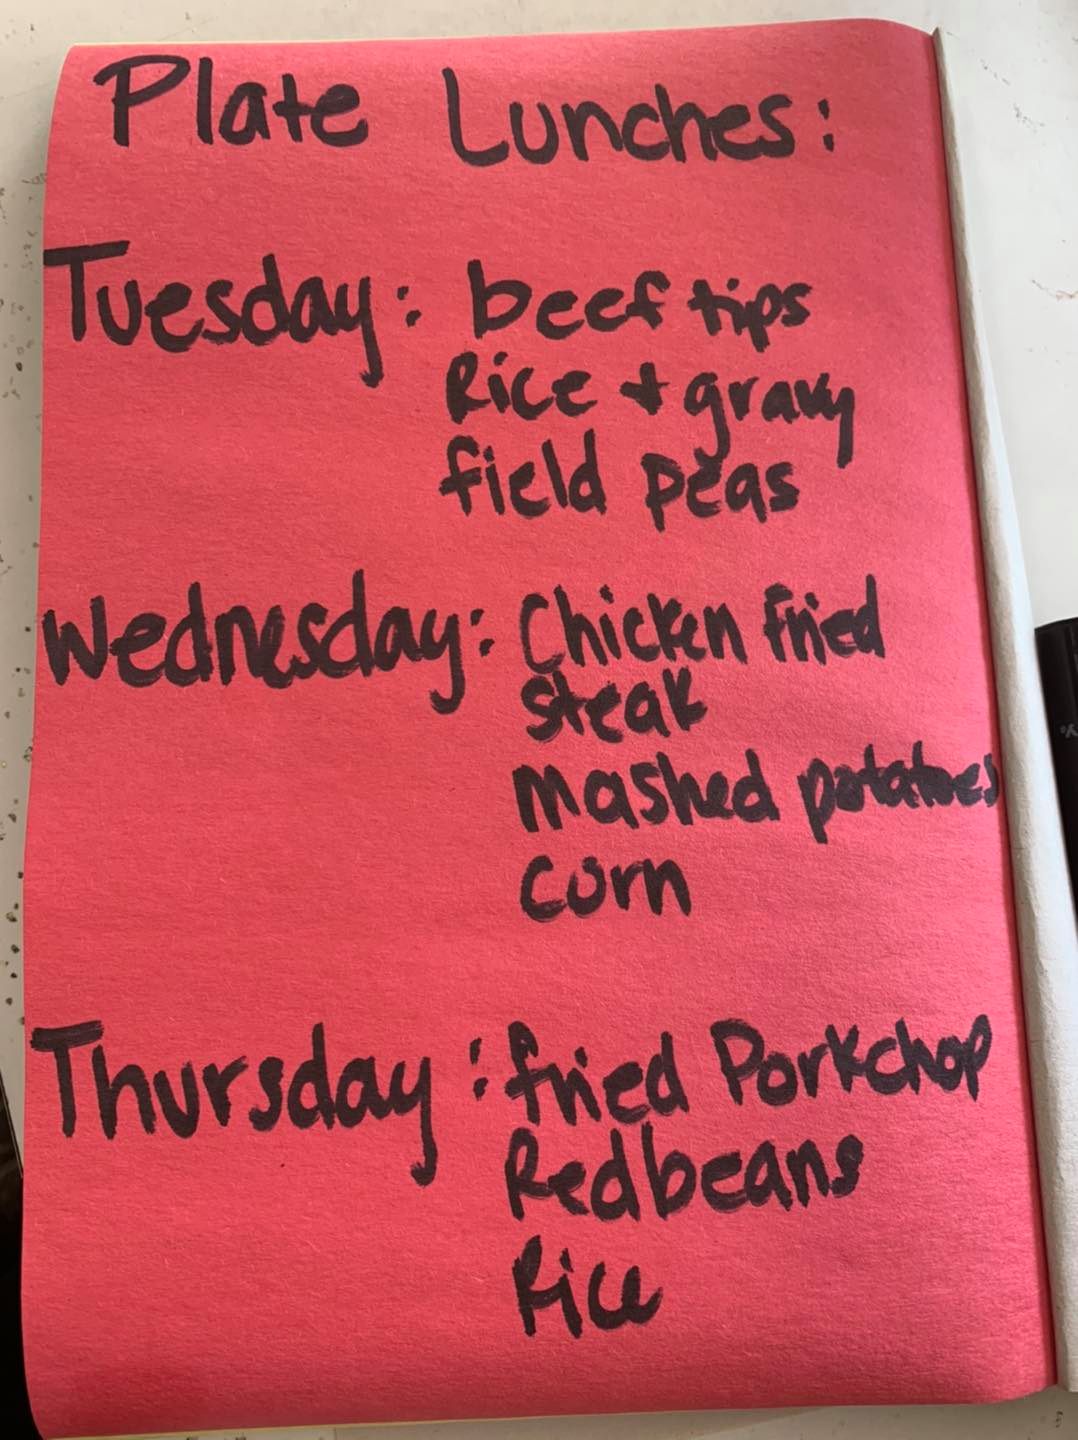 Plate Lunches:
Tuesday: beef tips
Rice + gravy
field peas
Wednesday: Chicken fried
steak
mashed potatoes
corn
Thursday: fried Porkchop
Redbeans
Rice